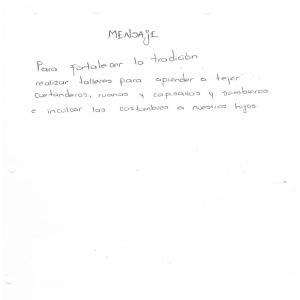 MENSAJE
Para fortalecer la tradición
realizar talleres para aprender a tejer
cuetanderos, ruanas y capisallos y sombreros
e inculcar las costumbres a nuestros hijos